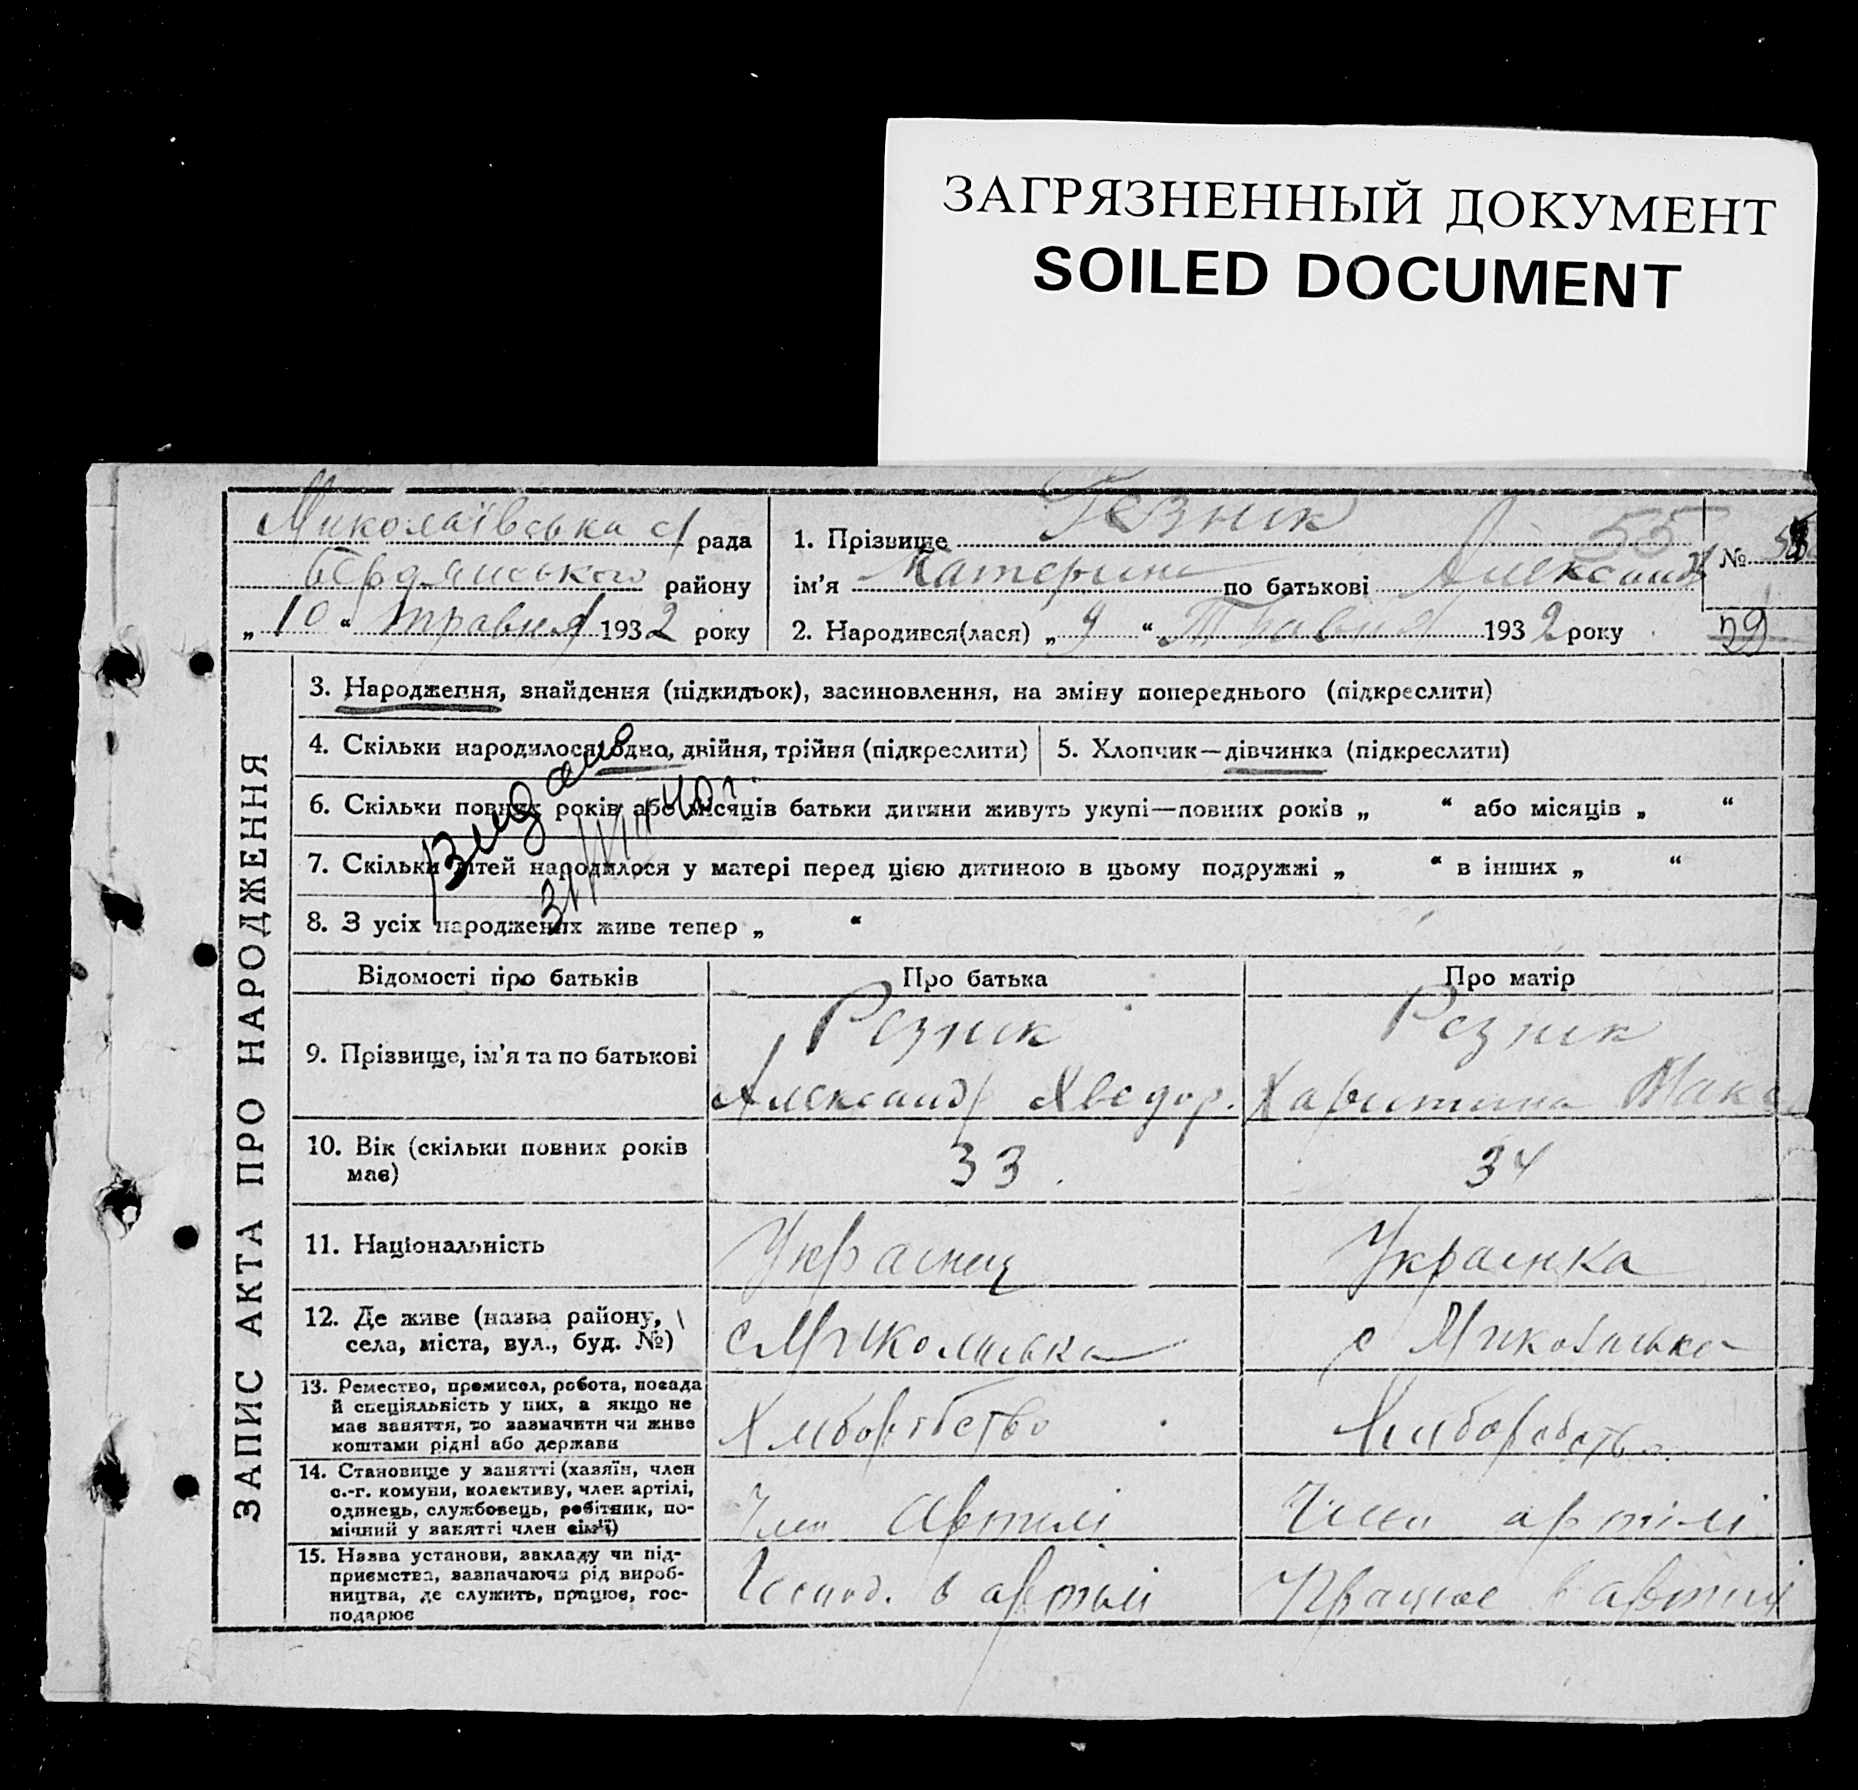 ЗАГРЯЗНЕННЫЙ ДОКУМЕНТ
SOILED DOCUMENT
ЗАПИС АКТА ПРО НАРОДЖЕННЯ
Миколаївська с/рада
Бердянського району
„10“ травня 1932 року
1. Прізвище Резник
55
ім'я Катерина по батькові Александр
№
2. Народився(лася) „9“ Травня 1932 року
59
3. Народження, знайдення (підкидьок), засиновлення, на зміну попереднього (підкреслити)
4. Скільки народилося: одно, двійня, трійня (підкреслити)
5. Хлопчик—дівчинка (підкреслити)
6. Скільки повних років або місяців батьки дитини живуть укупі—повних років „ “ або місяців „ “
7. Скільки дітей народилося у матері перед цією дитиною в цьому подружжі „ “ в інших „ “
8. З усіх народжених живе тепер „ “
Відомості про батьків
Про батька
Про матір
9. Прізвище, ім'я та по батькові
Резник
Александр Хведор.
Резник
Харитина Макс
10. Вік (скільки повних років
має)
33
34
11. Національність
Украинец
Украинка
12. Де живе (назва району,
села, міста, вул., буд. №)
с Миколаська
с Миколаська
13. Ремество, промисел, робота, посада
й спеціяльність у них, а якщо не
має заняття, то зазначити чи живе
коштами рідні або держави
Хліборобство
Хліборобство
14. Становище у занятті (хазяїн, член
с.-г. комуни, колективу, член артілі,
одинець, службовець, робітник, по-
мічний у занятті член сім'ї)
Член Артілі
Член артілі
15. Назва установи, закладу чи під-
приємства, зазначаючи рід вироб-
ництва, де служить, працює, гос-
подарює
Господ. в артілі
Працює в артілі